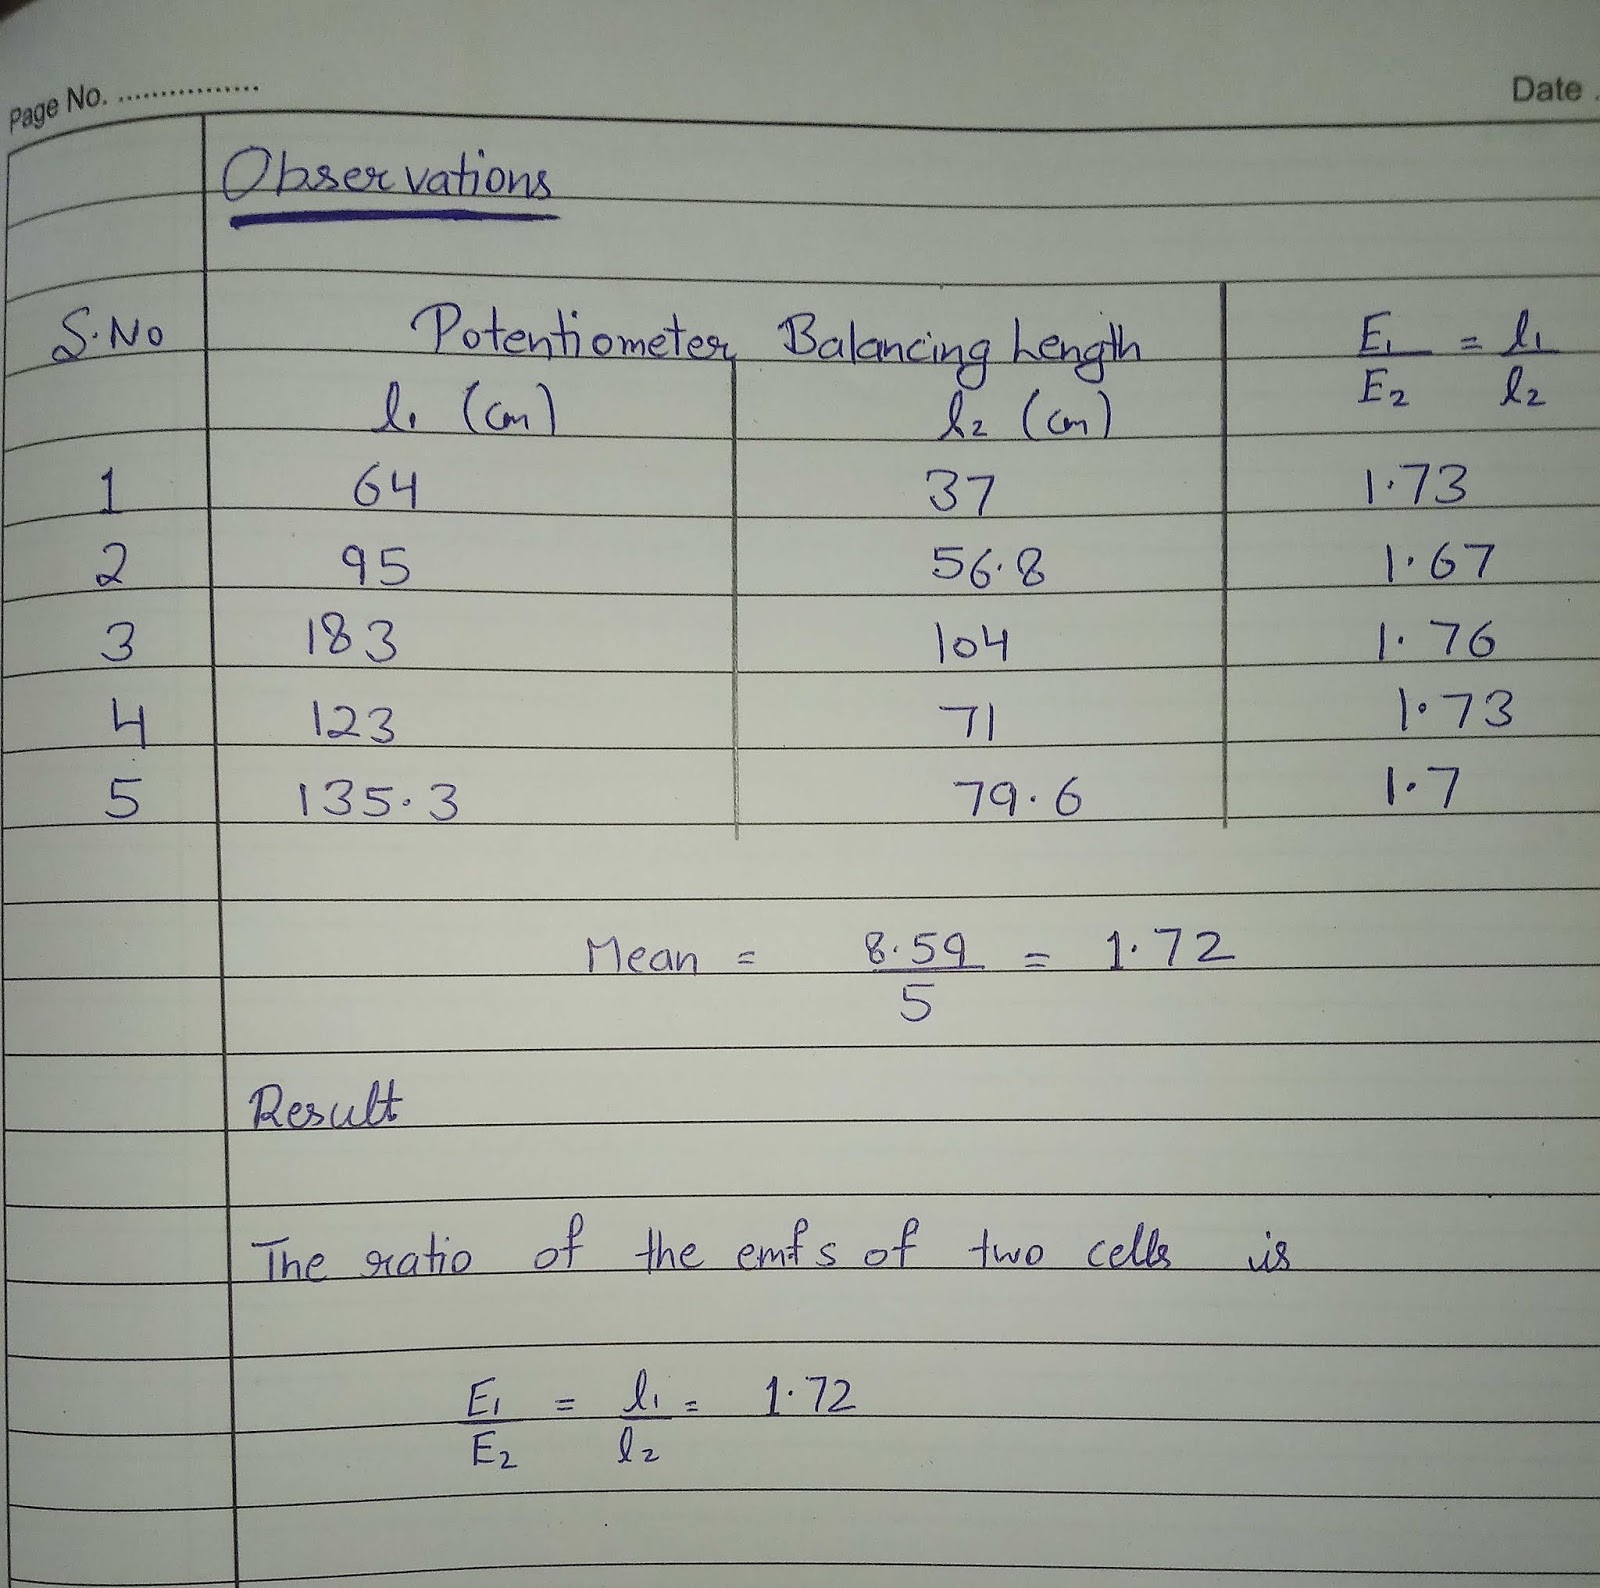 Page No. ................
Date .
Observations
S.No Potentiometer Balancing Length E1/E2 = l1/l2
l1 (cm) l2 (cm)
1 64 37 1.73
2 95 56.8 1.67
3 183 104 1.76
4 123 71 1.73
5 135.3 79.6 1.7
Mean = 8.59/5 = 1.72
Result
The ratio of the emfs of two cells is
E1/E2 = l1/l2 = 1.72